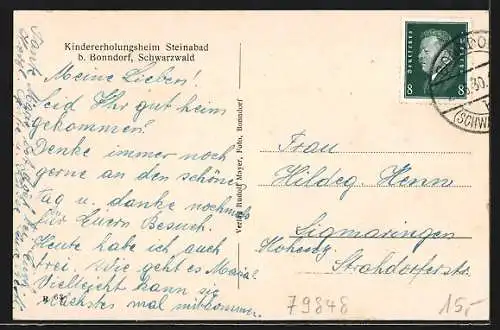 Kindererholungsheim Steinabad
b. Bonndorf, Schwarzwald
Meine Lieben!
Seid Ihr gut heim
gekommen?
Denke immer noch
gerne an den schönen
Tag u. danke nochmals
für Euern Besuch.
Heute habe ich auch
frei. Wie geht es Maria?
Vielleicht kann sie
nächstes mal mitkommen.
Verlag Rudolf Mayer, Foto, Bonndorf
Deutsches Reich
8 8
30.
(SCHWA
Frau
Hildeg. Henn
Sigmaringen
Hohenz.
Strohdorferstr.
79848
15,-